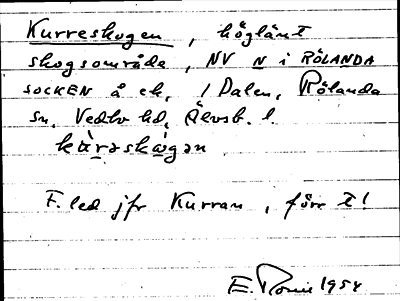 Kurreskogen, höglänt
skogsområde, NV N i RÖLANDA
SOCKEN å ek. / Dalen, Rölanda
sn. Vedbo hd, Älvsb. l.
kùrəskògən
F. led jfr Kurran, förr t!
E. 1954